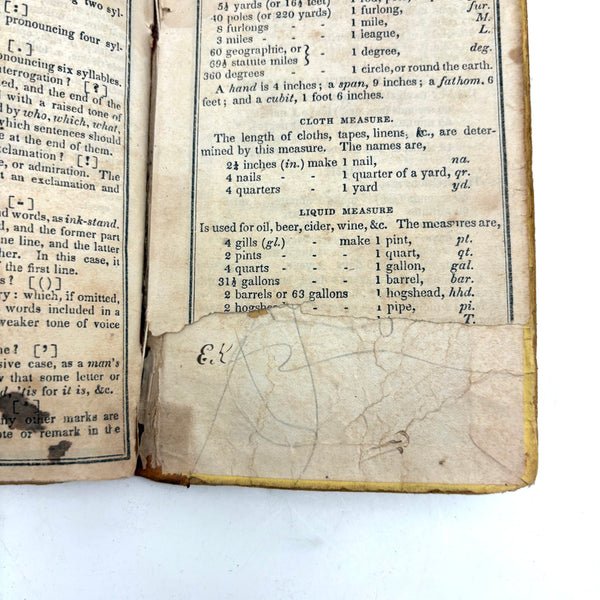 ng two syl-
[.]
pronouncing four syl-
[:]
pronouncing six syllables.
nterrogation? [?]
ed, and the end of the
with a raised tone of
by who, which, what,
which sentences should
at the end of them.
clamation? [!]
e, or admiration. The
an exclamation and
[-]
d words, as ink-stand.
d, and the former part
ne line, and the latter
her. In this case, it
the first line.
s? [()]
ry: which, if omitted,
words included in a
weaker tone of voice
me? [']
sive case, as a man's
w that some letter or
d, 'tis for it is, &c.
[^]
hy other marks are
ote or remark in the
5½ yards (or 16½ feet)
40 poles (or 220 yards) 1 furlong, fur.
8 furlongs - 1 mile, M.
3 miles - - 1 league, L.
60 geographic, or } - 1 degree, deg.
69½ statute miles }
360 degrees - - 1 circle, or round the earth.
A hand is 4 inches; a span, 9 inches; a fathom. 6
feet; and a cubit, 1 foot 6 inches.
CLOTH MEASURE.
The length of cloths, tapes, linens, &c., are deter-
mined by this measure. The names are,
2¼ inches (in.) make 1 nail, na.
4 nails - - 1 quarter of a yard, qr.
4 quarters - 1 yard yd.
LIQUID MEASURE
Is used for oil, beer, cider, wine, &c. The measures are,
4 gills (gl.) - make 1 pint, pt.
2 pints - - 1 quart, qt.
4 quarts - - 1 gallon, gal.
31½ gallons - 1 barrel, bar.
2 barrels or 63 gallons 1 hogshead, hhd.
2 hogsheads - 1 pipe, pi.
T.
E.K.